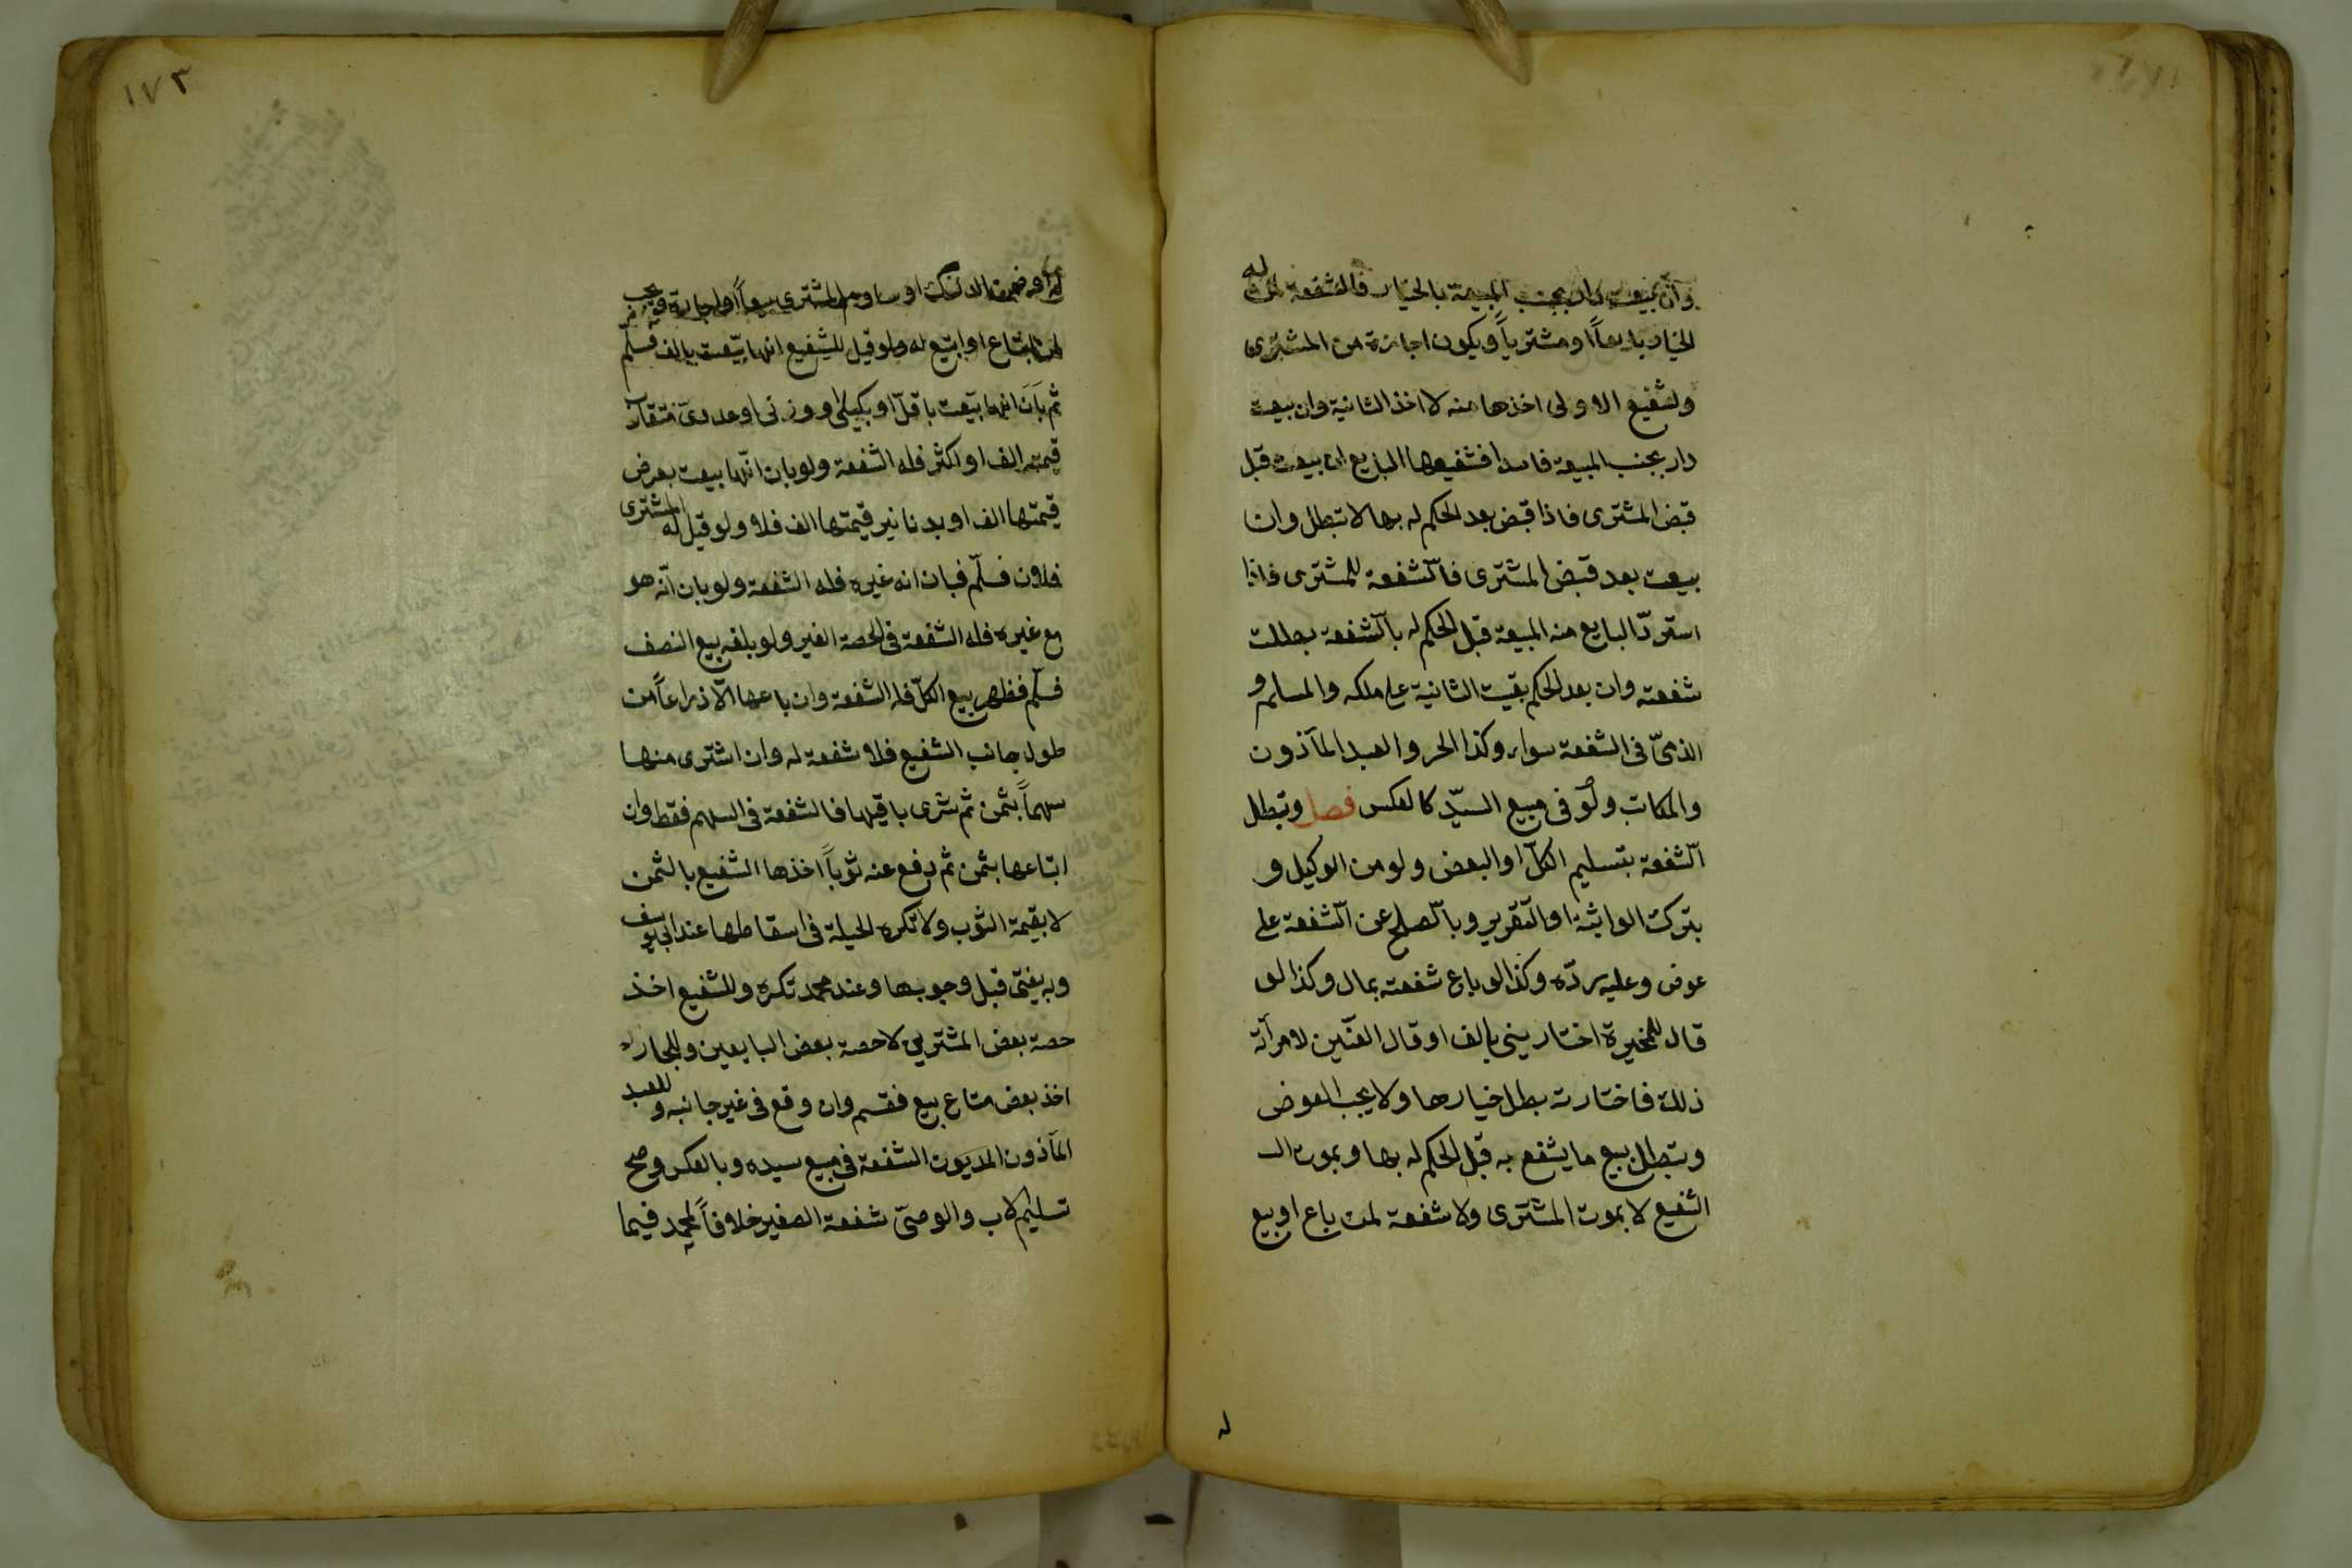 وان بيعت دار بجنب المبيعة بالخيار فالشفعة لمن له
الخيار بايعاً او مشترياً ويكون اجازة من المشترى
ولشفيع الاولى اخذها منه لا اخذ الثانية وان بيعت
دار بجنب المبيعة فاسدا فشفيعها البايع ان بيعت قبل
قبض المشترى فاذا قبض بعد الحكم له بها لا تبطل وان
بيعت بعد قبض المشترى فالشفعة للمشترى فاذا
استردّ البايع منه المبيعة قبل الحكم له بالشفعة بطلت
شفعته وان بعد الحكم بقيت الثانية على ملكه والمسلم و
الذمىّ فى الشفعة سواء وكذا الحر والعبد المأذون
والمكاتب ولو فى مبيع السيّد كالعكس فصل وتبطل
الشفعة بتسليم الكلّ او البعض ولو من الوكيل و
بترك المواثبة او التقرير وبالصلح عن الشفعة على
عوض وعليه ردّه وكذا لو باع شفعته بمال وكذا لو
قال للمخيرة اختارينى بالف او قال العنّين لامرأته
ذلك فاختارت بطل خيارها ولا يجب العوض
وتبطل ببيع ما يشفع به قبل الحكم له بها وبموت الـ
الشفيع لا بموت المشترى ولا شفعة لمن باع او بيع
له
١٧٣
له او ضمن الدرك او ساوم المشترى بيعاً او اجارة ويجب
لمن ابتاع او ابتيع له ولو قيل للشفيع انها بيعت بالف فسلم
ثم بان انها بيعت باقلّ او بكيلى او وزنى او عددى متقارب
قيمته الف او اكثر فله الشفعة ولو بان انها بيعت بعرض
قيمتها الف او بدنانير قيمتها الف فلا ولو قيل له المشترى
فلان فسلّم فبان انه غيره فله الشفعة ولو بان انّه هو
مع غيره فله الشفعة فى الحصة الغير ولو بلغه بيع النصف
فسلّم فظهر بيع الكلّ فله الشفعة وان باعها الّا ذراعاً من
طول جانب الشفيع فلا شفعة له وان اشترى منها
سهماً بثمن ثم شرى باقيها فالشفعة فى السهم فقط وان
ابتاعها بثمن ثم دفع عنه ثوباً اخذها الشفيع بالثمن
لا بقيمة الثوب ولا تكره الحيلة فى اسقاطها عند ابى يوسف
وبه يفتى قبل وجوبها وعند محمد تكره وللشفيع اخذ
حصة بعض المشتريى لا حصة بعض البايعين وللجار
اخذ بعض متاع بيع فقسم وان وقع فى غير جانبه وللعبد
المأذون المديون الشفعة فى مبيع سيده وبالعكس وصح
تسليم الاب والوصىّ شفعة الصغير خلافاً لمحمد فيما